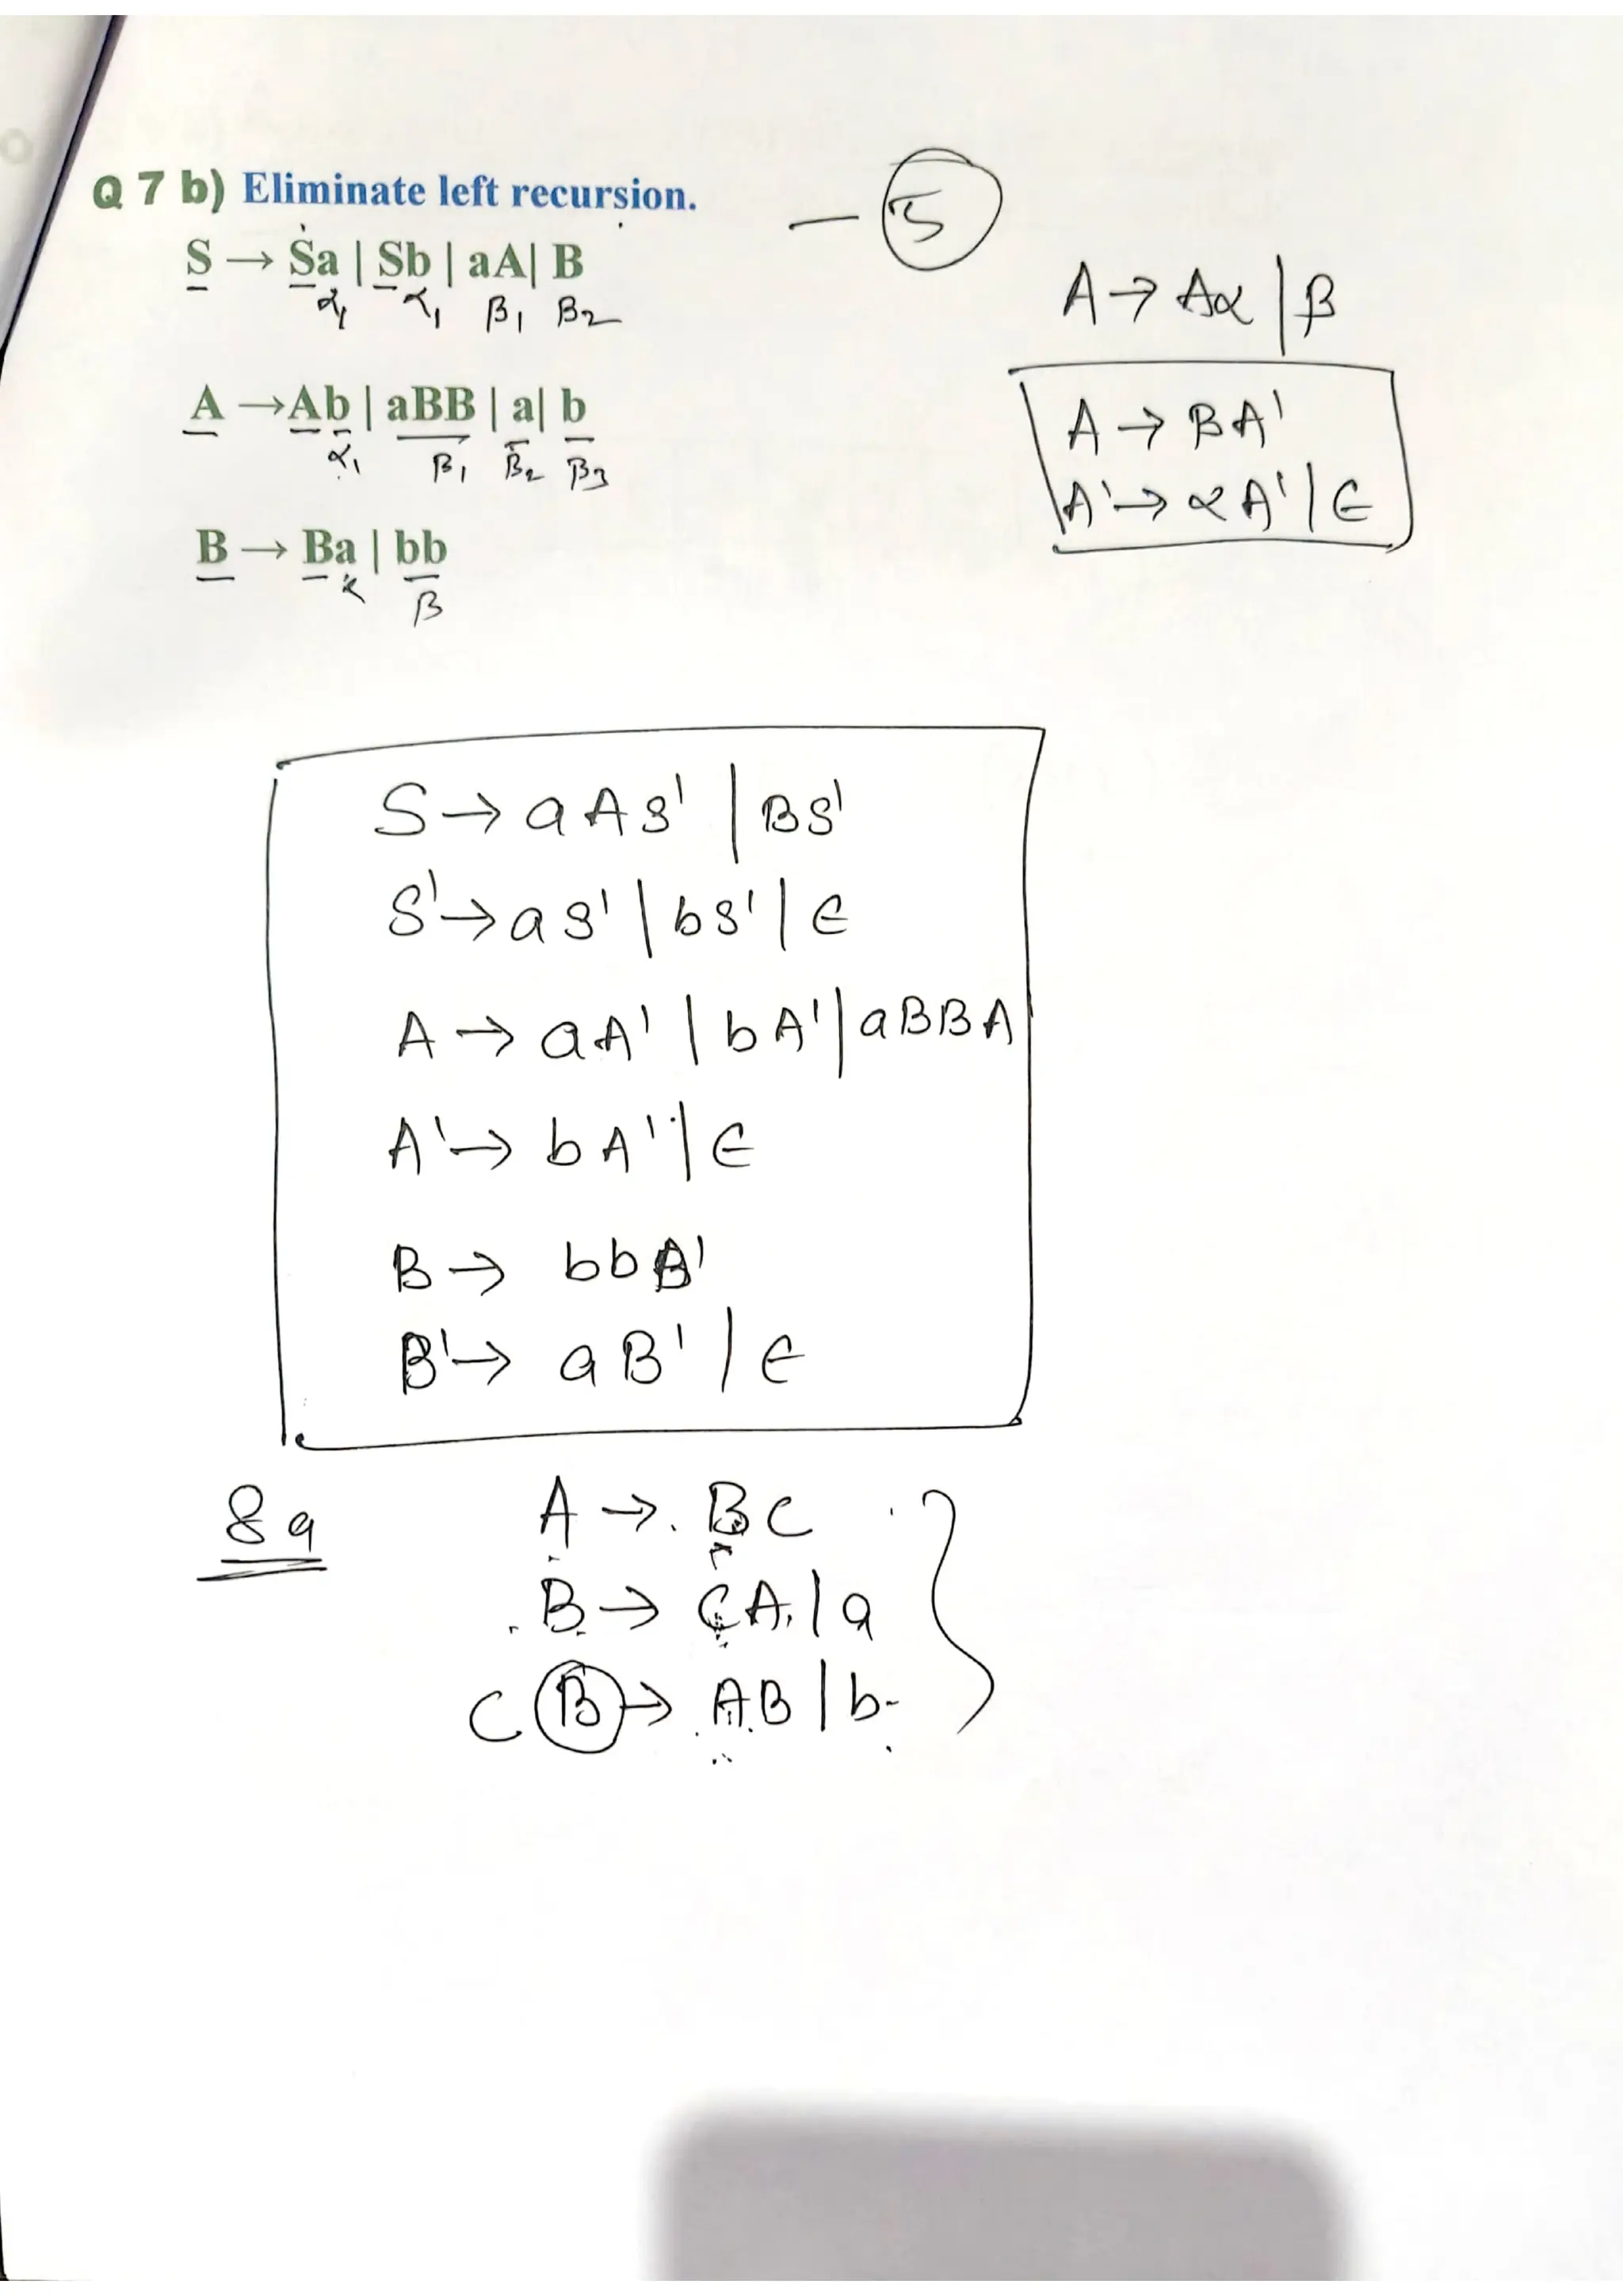 Q 7 b) Eliminate left recursion. — 5
S → Sa | Sb | aA| B
α1 α1 β1 β2
A → Aα | β
A → Ab | aBB | a| b
α1 β1 β2 β3
A → βA'
A' → αA' | ∈
B → Ba | bb
α β
S → aAS' | BS'
S' → aS' | bS' | ∈
A → aA' | bA' | aBBA
A' → bA' | ∈
B → bbB'
B' → aB' | ∈
8a A → BC
B → CA | a
C B → AB | b